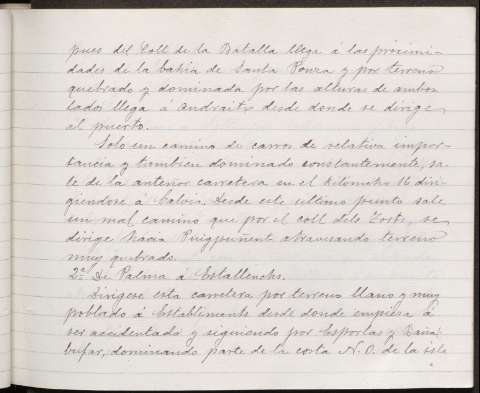 pues del Coll de la Batalla llega á las proximi-
dades de la bahia de Santa Ponza y por terreno
quebrado y dominada por las alturas de ambos
lados llega á Andraitx desde donde se dirige
al puerto.
Solo un camino de carros de relativa impor-
tancia y tambien dominado constantemente, sa-
le de la anterior carretera en el kilometro 16 diri-
giendose á Calvia. Desde este ultimo punto sale
un mal camino que por el coll dels Tords, se
dirige hácia Puigpuñent atravesando terreno
muy quebrado.
2º De Palma á Estallenchs.
Dirigese esta carretera por terreno llano y muy
poblado á Establiments desde donde empieza á
ser accidentada y siguiendo por Esporlas y Baña-
bufar, dominando parte de la costa N. O. de la isla